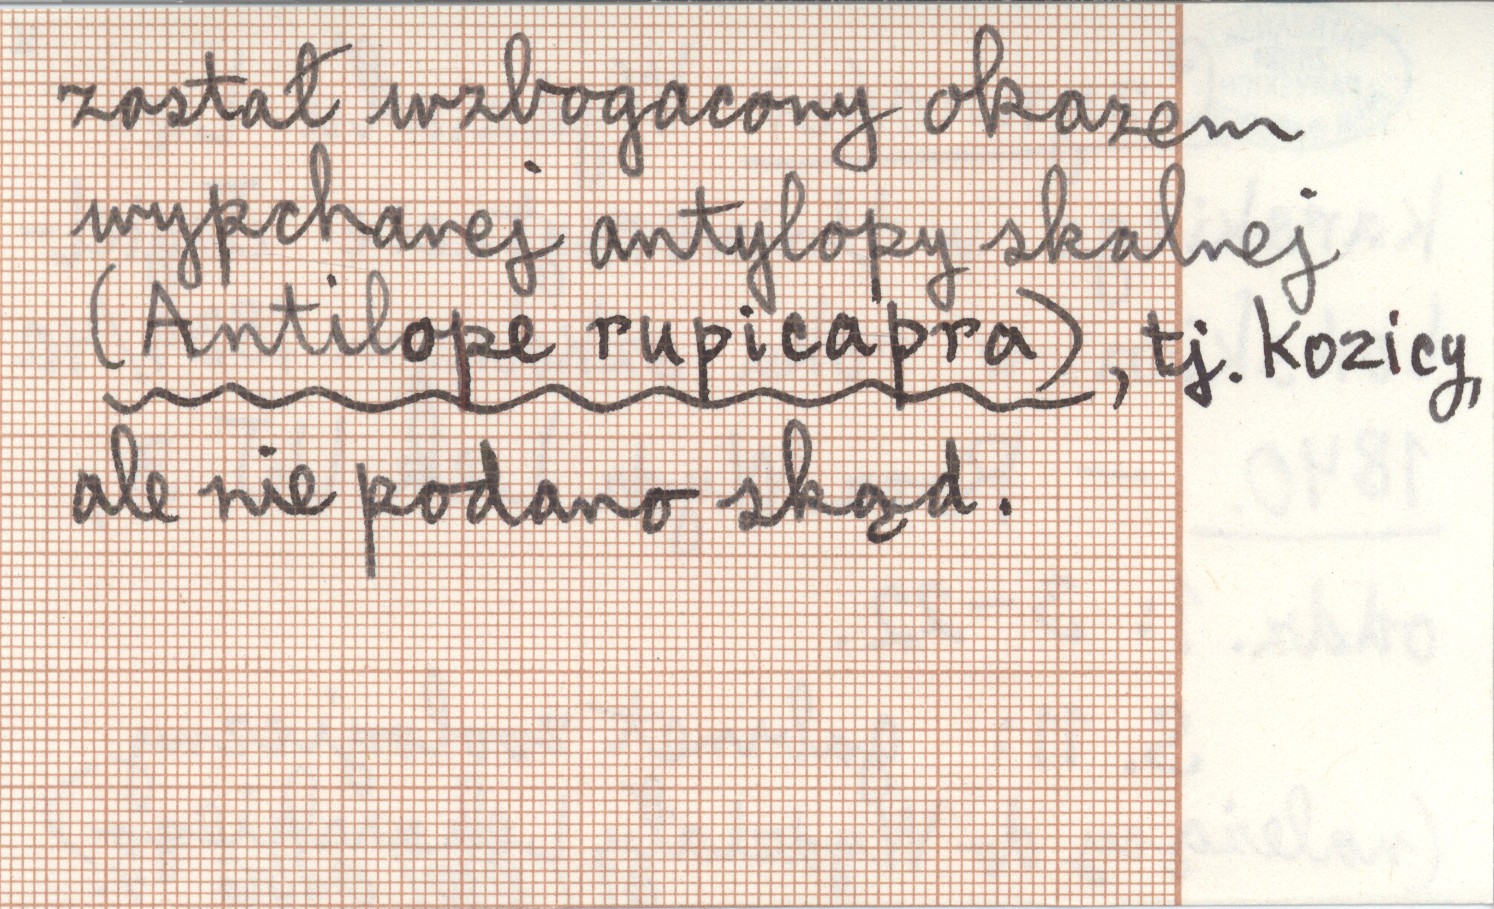 został wzbogacony okazem
wypchanej antylopy skalnej
(Antilope rupicapra), tj. kozicy,
ale nie podano skąd.